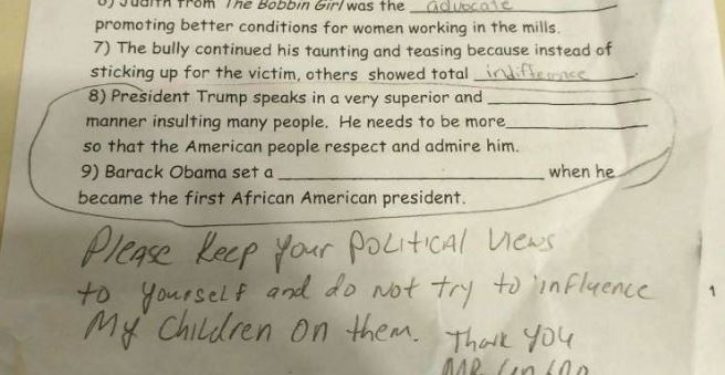 6) Judith from The Bobbin Girl was the advocate
promoting better conditions for women working in the mills.
7) The bully continued his taunting and teasing because instead of
sticking up for the victim, others showed total indifference.
8) President Trump speaks in a very superior and
manner insulting many people. He needs to be more
so that the American people respect and admire him.
9) Barack Obama set a when he
became the first African American president.
Please keep your political views
to yourself and do not try to influence
1
My children on them. Thank you
MR